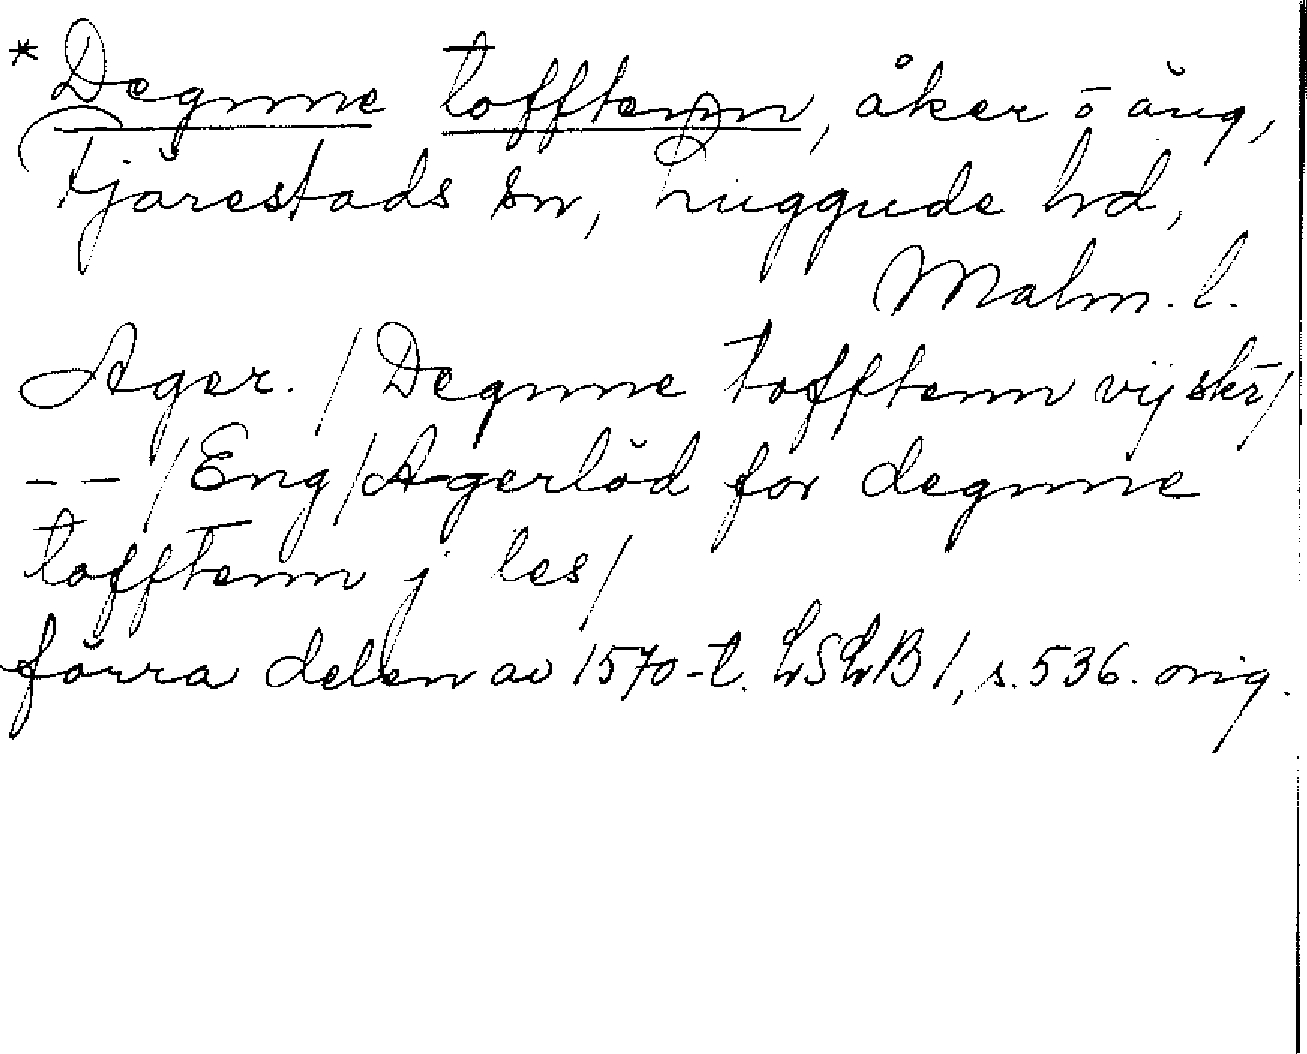 * Degnne tofftenn, åker o äng,
Fjärestads sn, Luggude hd,
Malm. l.
Ager. / Degnne tofftenn vij skr /
- - / Eng / Agerlöd for degnne
tofftenn j les /
förra delen av 1570-t. LSLB 1, s. 536. orig.